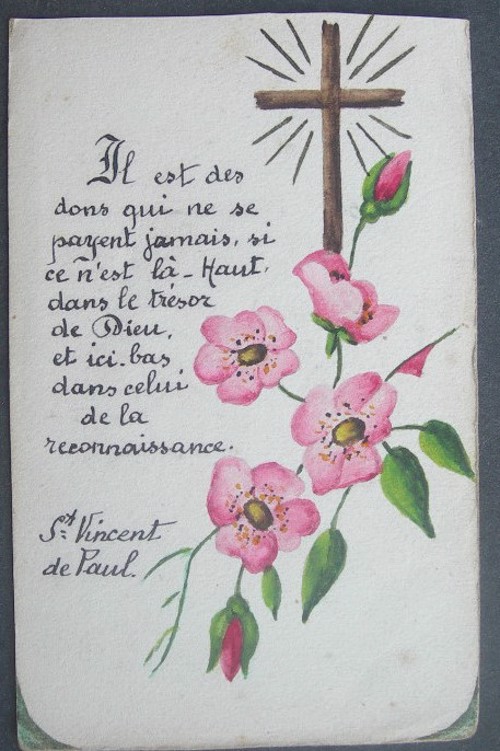 Il est des
dons qui ne se
payent jamais, si
ce n'est là-Haut,
dans le trésor
de Dieu,
et ici-bas
dans celui
de la
reconnaissance.
St. Vincent
de Paul.